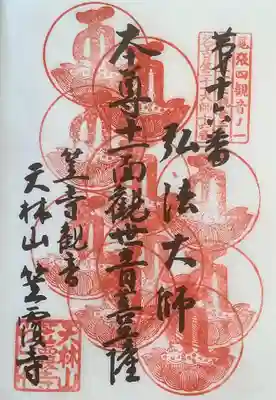 第十六番
弘法大師
本尊十一面観世音菩薩
笠寺観音
天林山 笠覆寺
尾張四観音ノ一